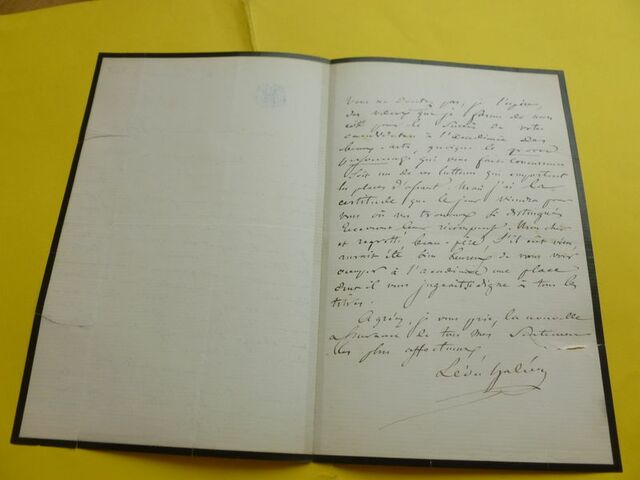 Vous ne doutez pas, je l'espère,
des vœux que je forme de mon
côté pour le succès de votre
candidature à l'académie des
beaux-arts, quoique le
personnage qui vous fait concurrence
soit un de ces lutteurs qui emportent
les places d'assaut. Mais j'ai la
certitude que le jour viendra pour
vous où vos travaux si distingués
recevront leur récompense. Mon cher
et regretté beau-père s'il eût vécu,
aurait été bien heureux de vous voir
occuper à l'académie une place
dont il vous jugeait si digne à tous les
titres.
Agréez, je vous prie, la nouvelle
assurance de tous mes sentiments
les plus affectueux
Léon Halévy